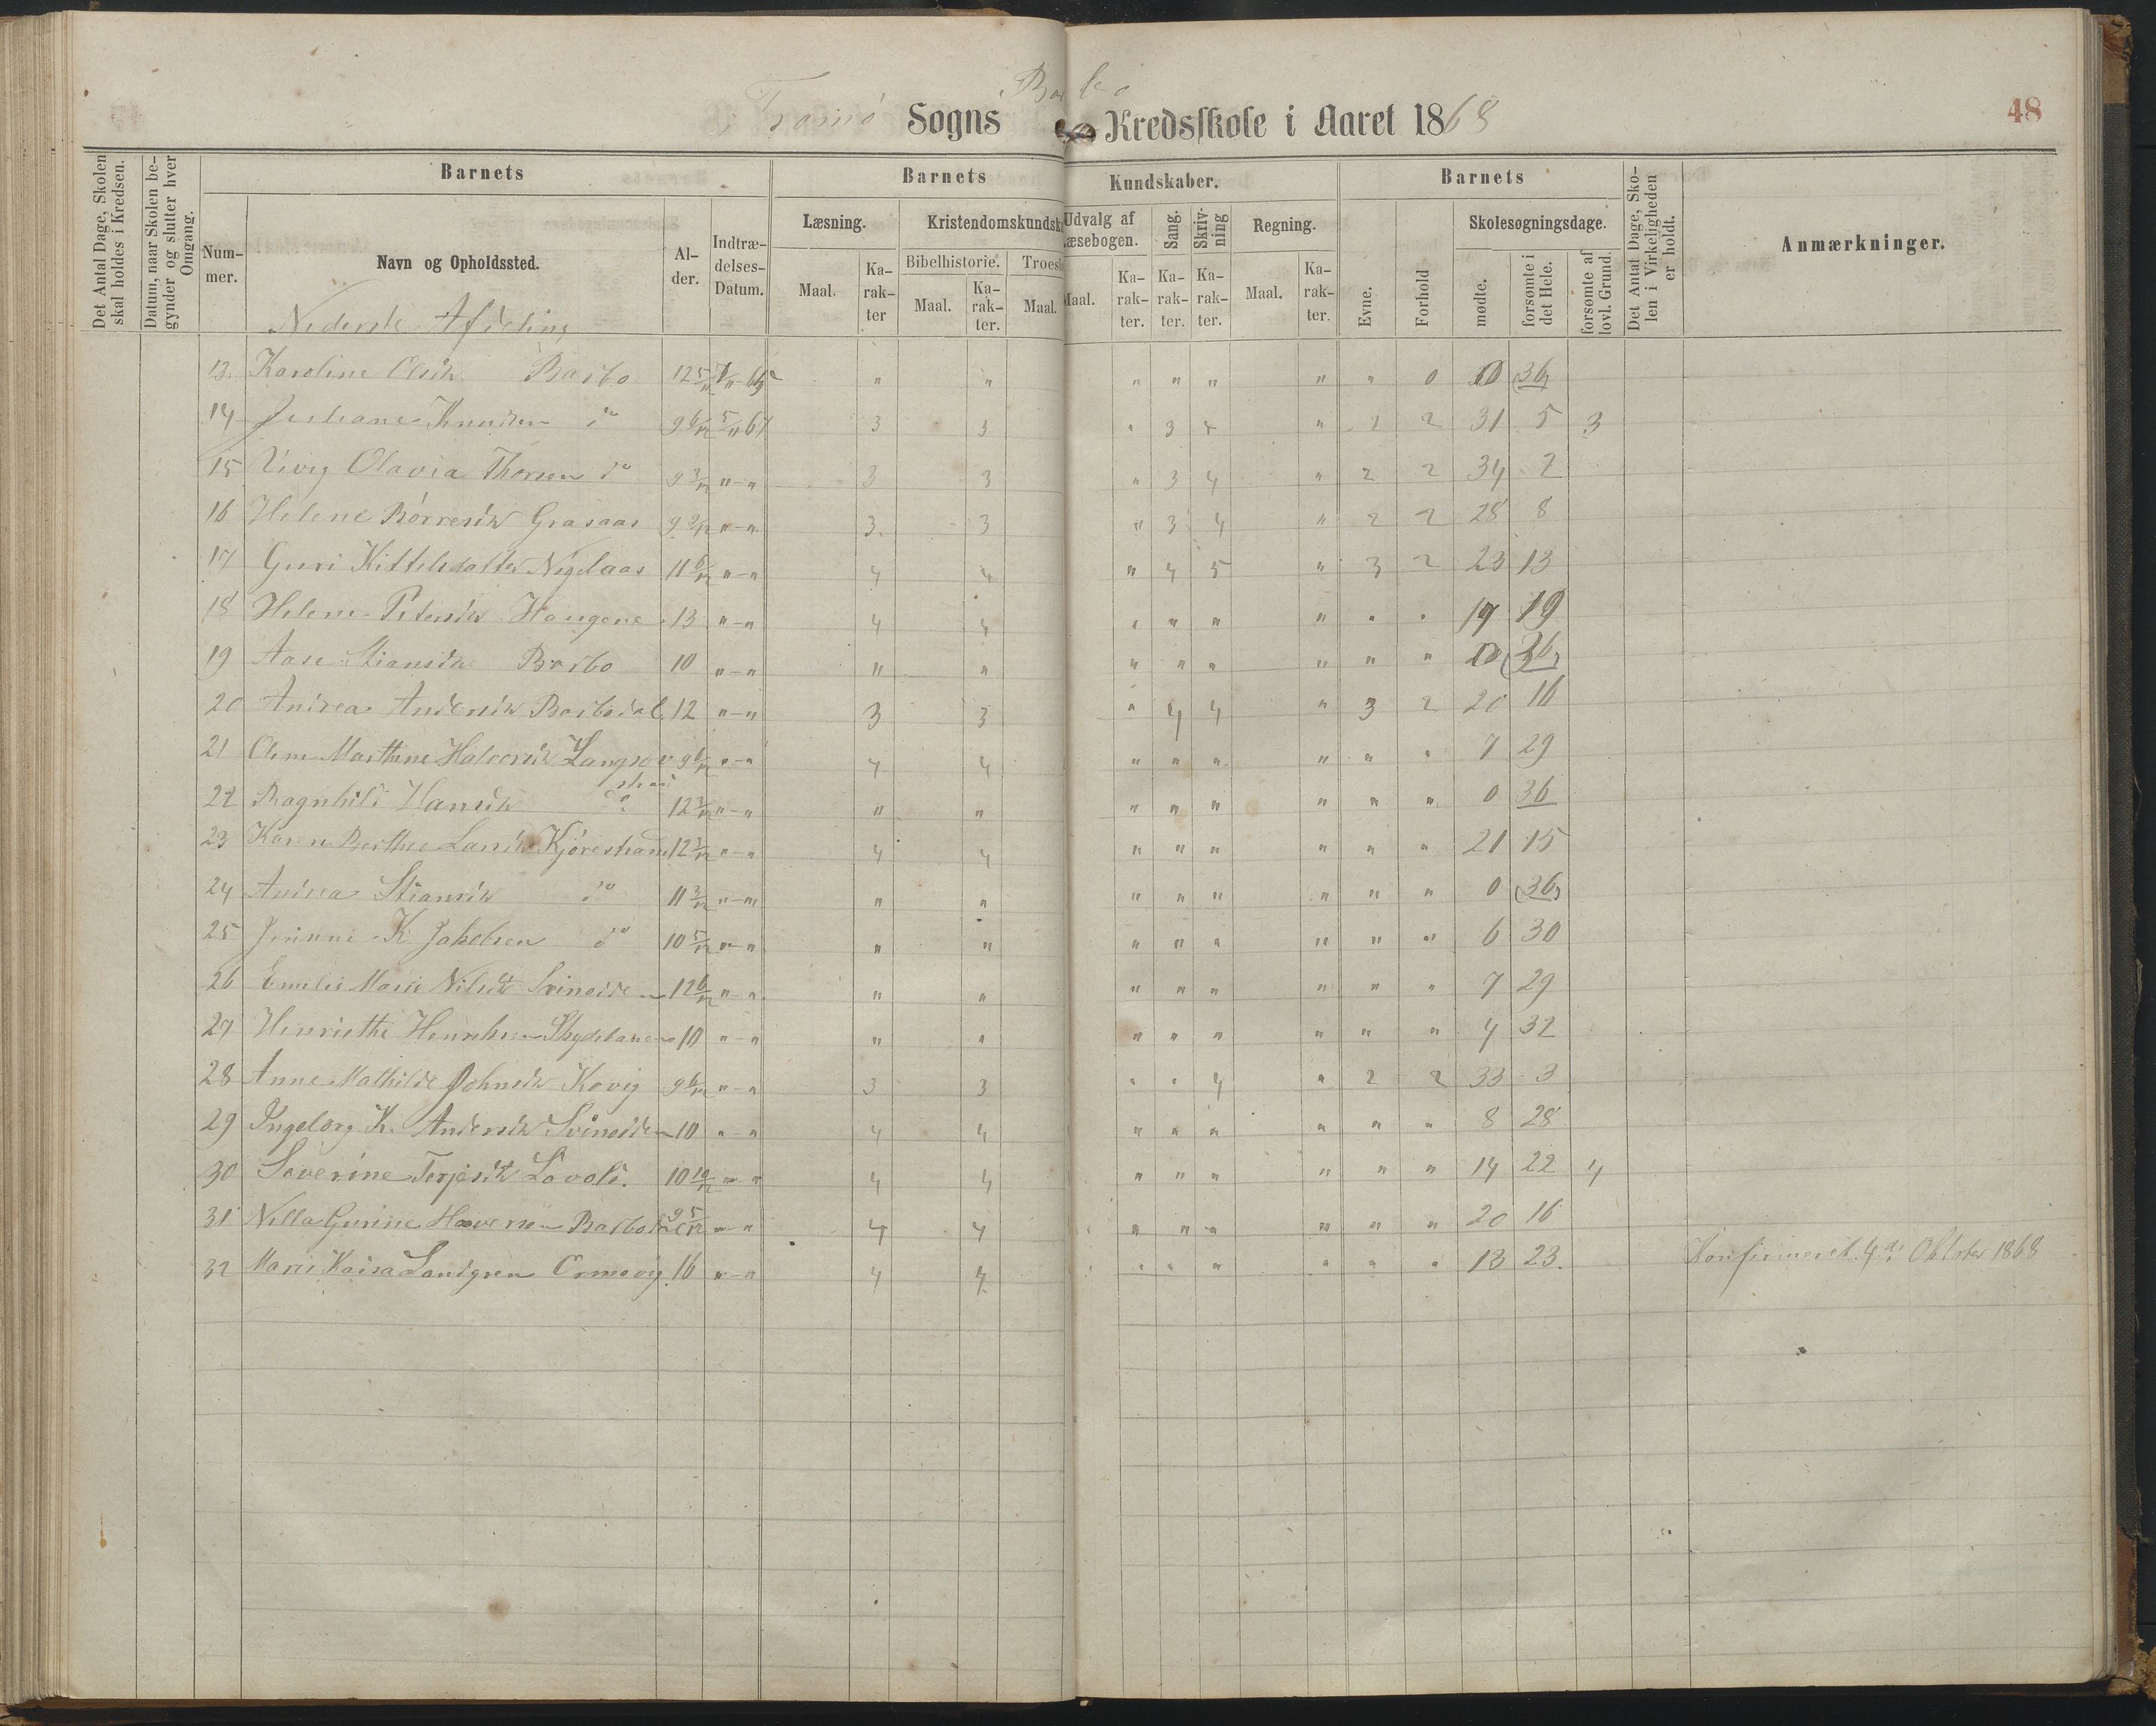 Barbo
Tromø Sogns Kredsskole i Aaret 1868
48
Det Antal Dage, Skolen skal holdes i Kredsen.
Datum, naar Skolen begynder og slutter hver Omgang.
Barnets
Nummer.
Navn og Opholdssted.
Alder.
Indtrædelses-Datum.
Barnets
Læsning.
Maal.
Karakter
Kristendomskundsk
Bibelhistorie.
Maal.
Karakter.
Troes
Maal.
Kundskaber.
Udvalg af Læsebogen.
Maal.
Karakter.
Sang.
Karakter.
Skrivning
Karakter.
Regning.
Maal.
Karakter.
Barnets
Evne.
Forhold
Skolesøgningsdage.
mødte.
forsømte i det Hele.
forsømte af lovl. Grund.
Det Antal Dage, Skolen i Virkeligheden er holdt.
Anmærkninger.
Nederste Afdeling
13. Karoline Olsdtr Barbo 12 5/12 " " " " " " " 0 0 36
14 Knudsen do 9 6/12 5/11 67 3 3 " 3 4 " 2 2 31 5 3
15 Olavia Thorsen do 9 3/12 "-" 3 3 " 3 4 " 2 2 34 2
16 Helene Børresdtr Grasaas 9 2/12 "-" 3 3 " 3 4 " 2 2 28 8
17 Guri Kittelsdatter 11 6/12 "-" 4 4 " 4 5 " 3 2 23 13
18 Helene Petersdtr Haugene 13 "-" 4 4 " " " " " " 17 19
19 Aase Stiansdtr Barbo 10 "-" " " " " " " " " 0 36
20 Andrea Andersdtr Barbodal 12 "-" 3 3 " 4 4 " 3 2 20 16
21 Olene Marthine Halvorsdtr 9 6/12 "-" 4 4 " " " " " " 7 29
22 Ragnhild Hansdtr do 12 3/12 "-" " " " " " " " " 0 36
23 Karen Berthee Larsdtr Kjørestrand 12 3/12 "-" 4 4 " " " " " " 21 15
24 Andrea Stiansdtr do 11 3/12 "-" " " " " " " " " 0 36
25 K Jakobsen do 10 5/12 "-" " " " " " " " " 6 30
26 Emelie Marie Nilsdtr Svinodden 12 6/12 "-" " " " " " " " " 7 29
27 Henriethe Henriksen Skydebanen 10 "-" " " " " " " " " 4 32
28 Anne Mathilde Johnsdtr Kovig 9 6/12 "-" 3 3 " " 4 " 2 2 33 3
29 Ingeborg K. Andersdtr Svinodden 10 "-" 4 4 " " " " " " 8 28
30 Severine Terjesdtr Lovold. 10 10/12 "-" 4 4 " " " " " " 14 22 4
31 Nella Gurine Halvorsen 9 5/12 "-" 4 4 " " " " " " 20 16
32 Marie Kaisa Landgren Ormevig. 16 "-" 4 4 " " " " " " 13 23. Konfirmeret 4de Oktober 1868